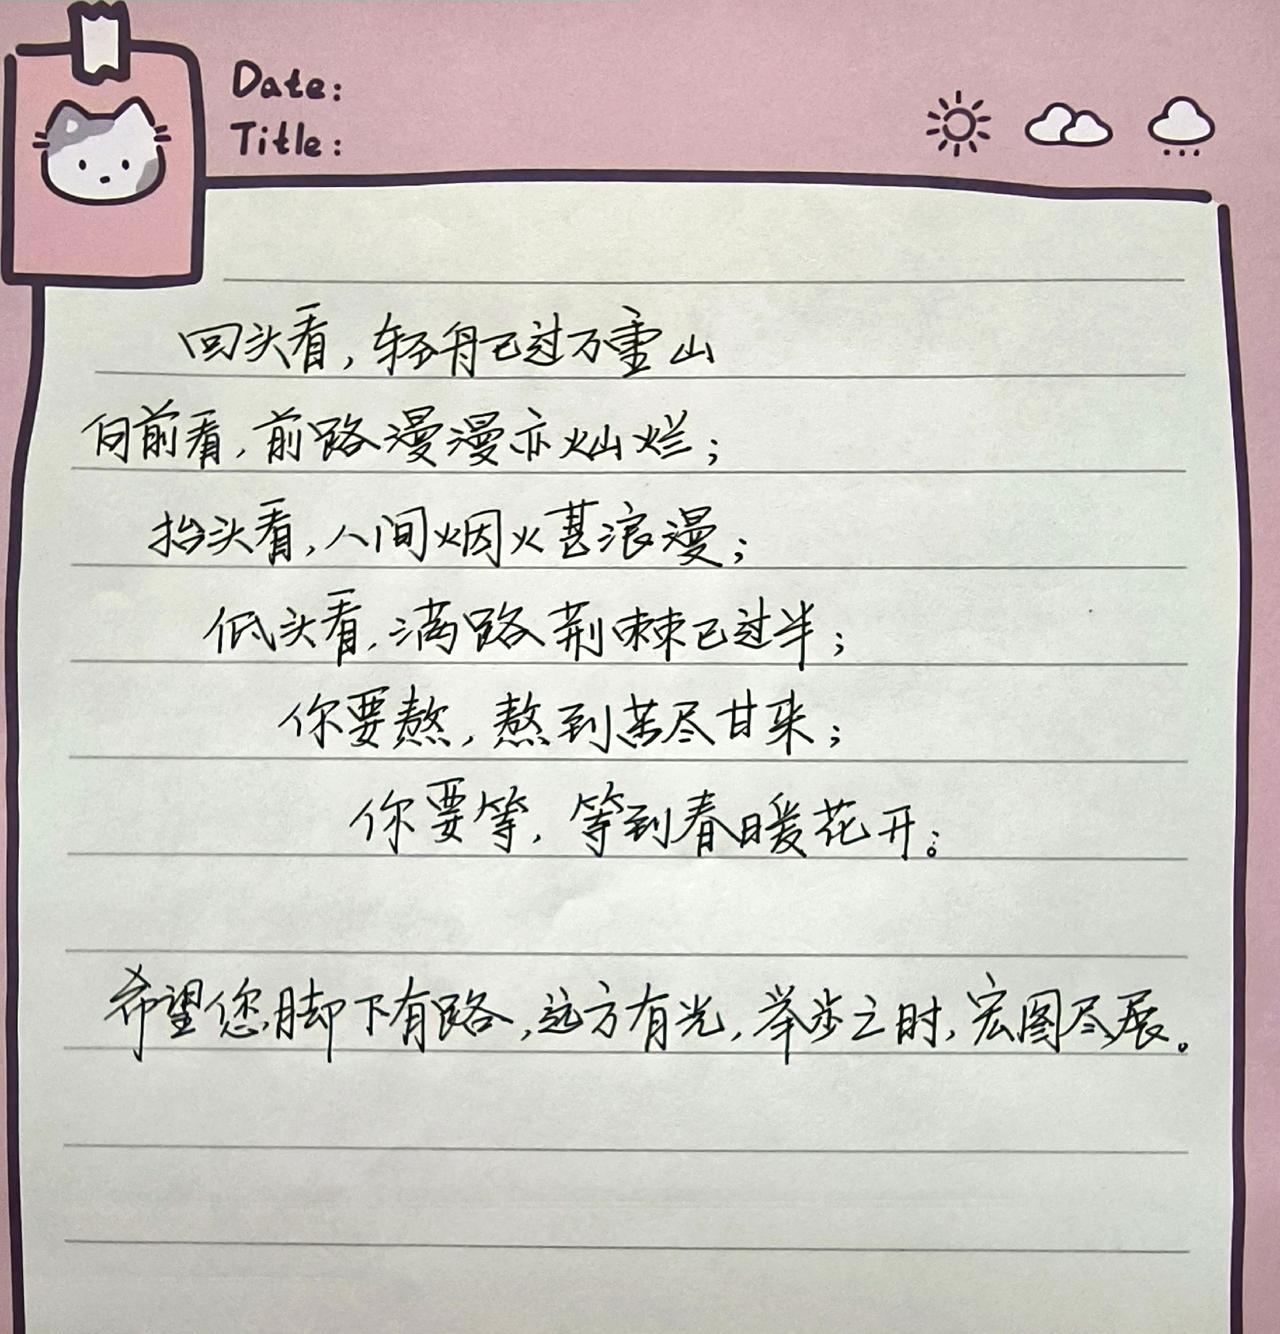 Date:
Title:
回头看，轻舟已过万重山
向前看，前路漫漫亦灿烂；
抬头看，人间烟火甚浪漫；
低头看，满路荆棘已过半；
你要熬，熬到苦尽甘来；
你要等，等到春暖花开。
希望您脚下有路，远方有光，举步之时，宏图尽展。